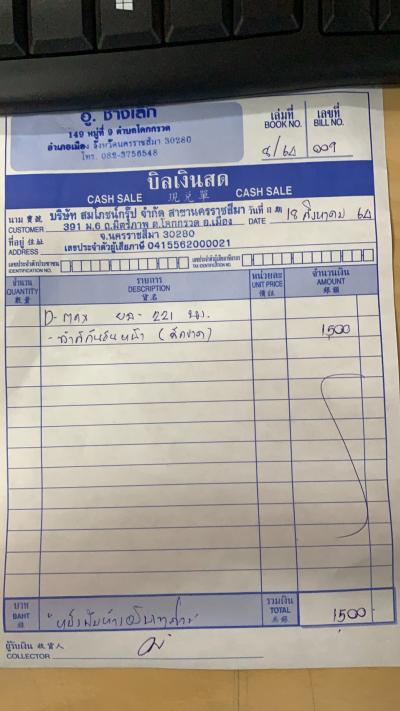 อู. ช่างเล็ก
149 หมู่ที่ 9 ตำบลโคกกรวด
อำเภอเมือง จังหวัดนครราชสีมา 30280
โทร. 082-3756548
เล่มที่ เลขที่
BOOK NO. BILL NO.
8/64 009
บิลเงินสด
CASH SALE 現兌單 CASH SALE
นาม 寶號 บริษัท สมโภชน์กรุ๊ป จำกัด สาขานครราชสีมา วันที่ 13 สิงหาคม 64
CUSTOMER 391 ม.6 ถ.มิตรภาพ ต.โคกกรวด อ.เมือง DATE
ที่อยู่ 住址 จ.นครราชสีมา 30280
ADDRESS เลขประจำตัวผู้เสียภาษี 0415562000021
เลขประจำตัวประชาชน เลขประจำตัวผู้เสียภาษีอากร
IDENTIFICATION NO. TAX IDENTIFICATION NO.
จำนวน รายการ หน่วยละ จำนวนเงิน
QUANTITY DESCRIPTION UNIT PRICE AMOUNT
數量 貨名 價錢 銀額
D-MAX ยล- 221 นม.
- ทำสีกันชนหน้า ( ) 1500
บาท รวมเงิน
BAHT TOTAL 1500
銖
หนึ่งพันห้าร้อยบาทถ้วน
ผู้รับเงิน 收貨人
COLLECTOR